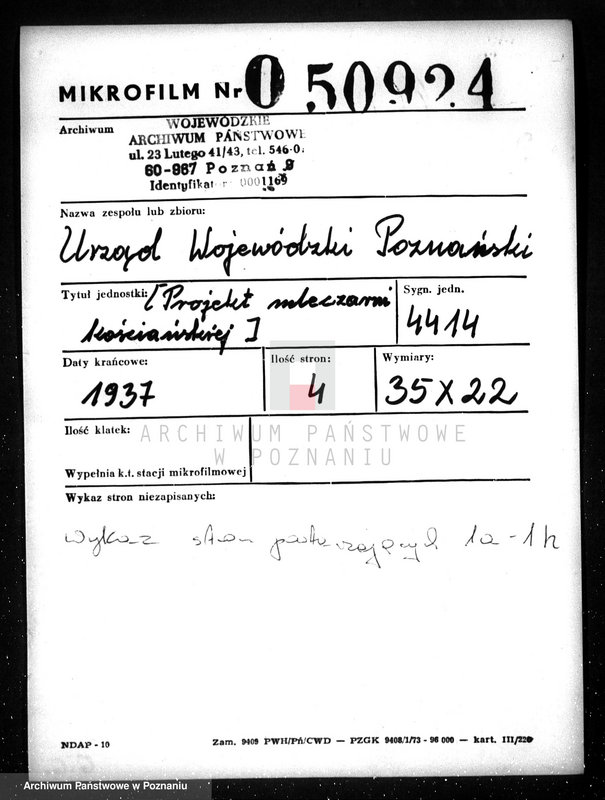 MIKROFILM Nr 0 50924
Archiwum
WOJEWÓDZKIE
ARCHIWUM PAŃSTWOWE
ul. 23 Lutego 41/43, tel. 546-0
60-967 Poznań 9
Identyfikator 0001169
Nazwa zespołu lub zbioru:
Urząd Wojewódzki Poznański
Tytuł jednostki: [Projekt mleczarni
kościańskiej]
Sygn. jedn.
4414
Daty krańcowe:
1937
Ilość stron:
4
Wymiary:
35 x 22
Ilość klatek:
Wypełnia k.t. stacji mikrofilmowej
ARCHIWUM PAŃSTWOWE
W POZNANIU
Wykaz stron niezapisanych:
wykaz stron powtarzających 1a-1h
NDAP - 10
Zam. 9409 PWH/Pń/CWD — PZGK 9408/I/73 - 96 000 — kart. III/220
Archiwum Państwowe w Poznaniu